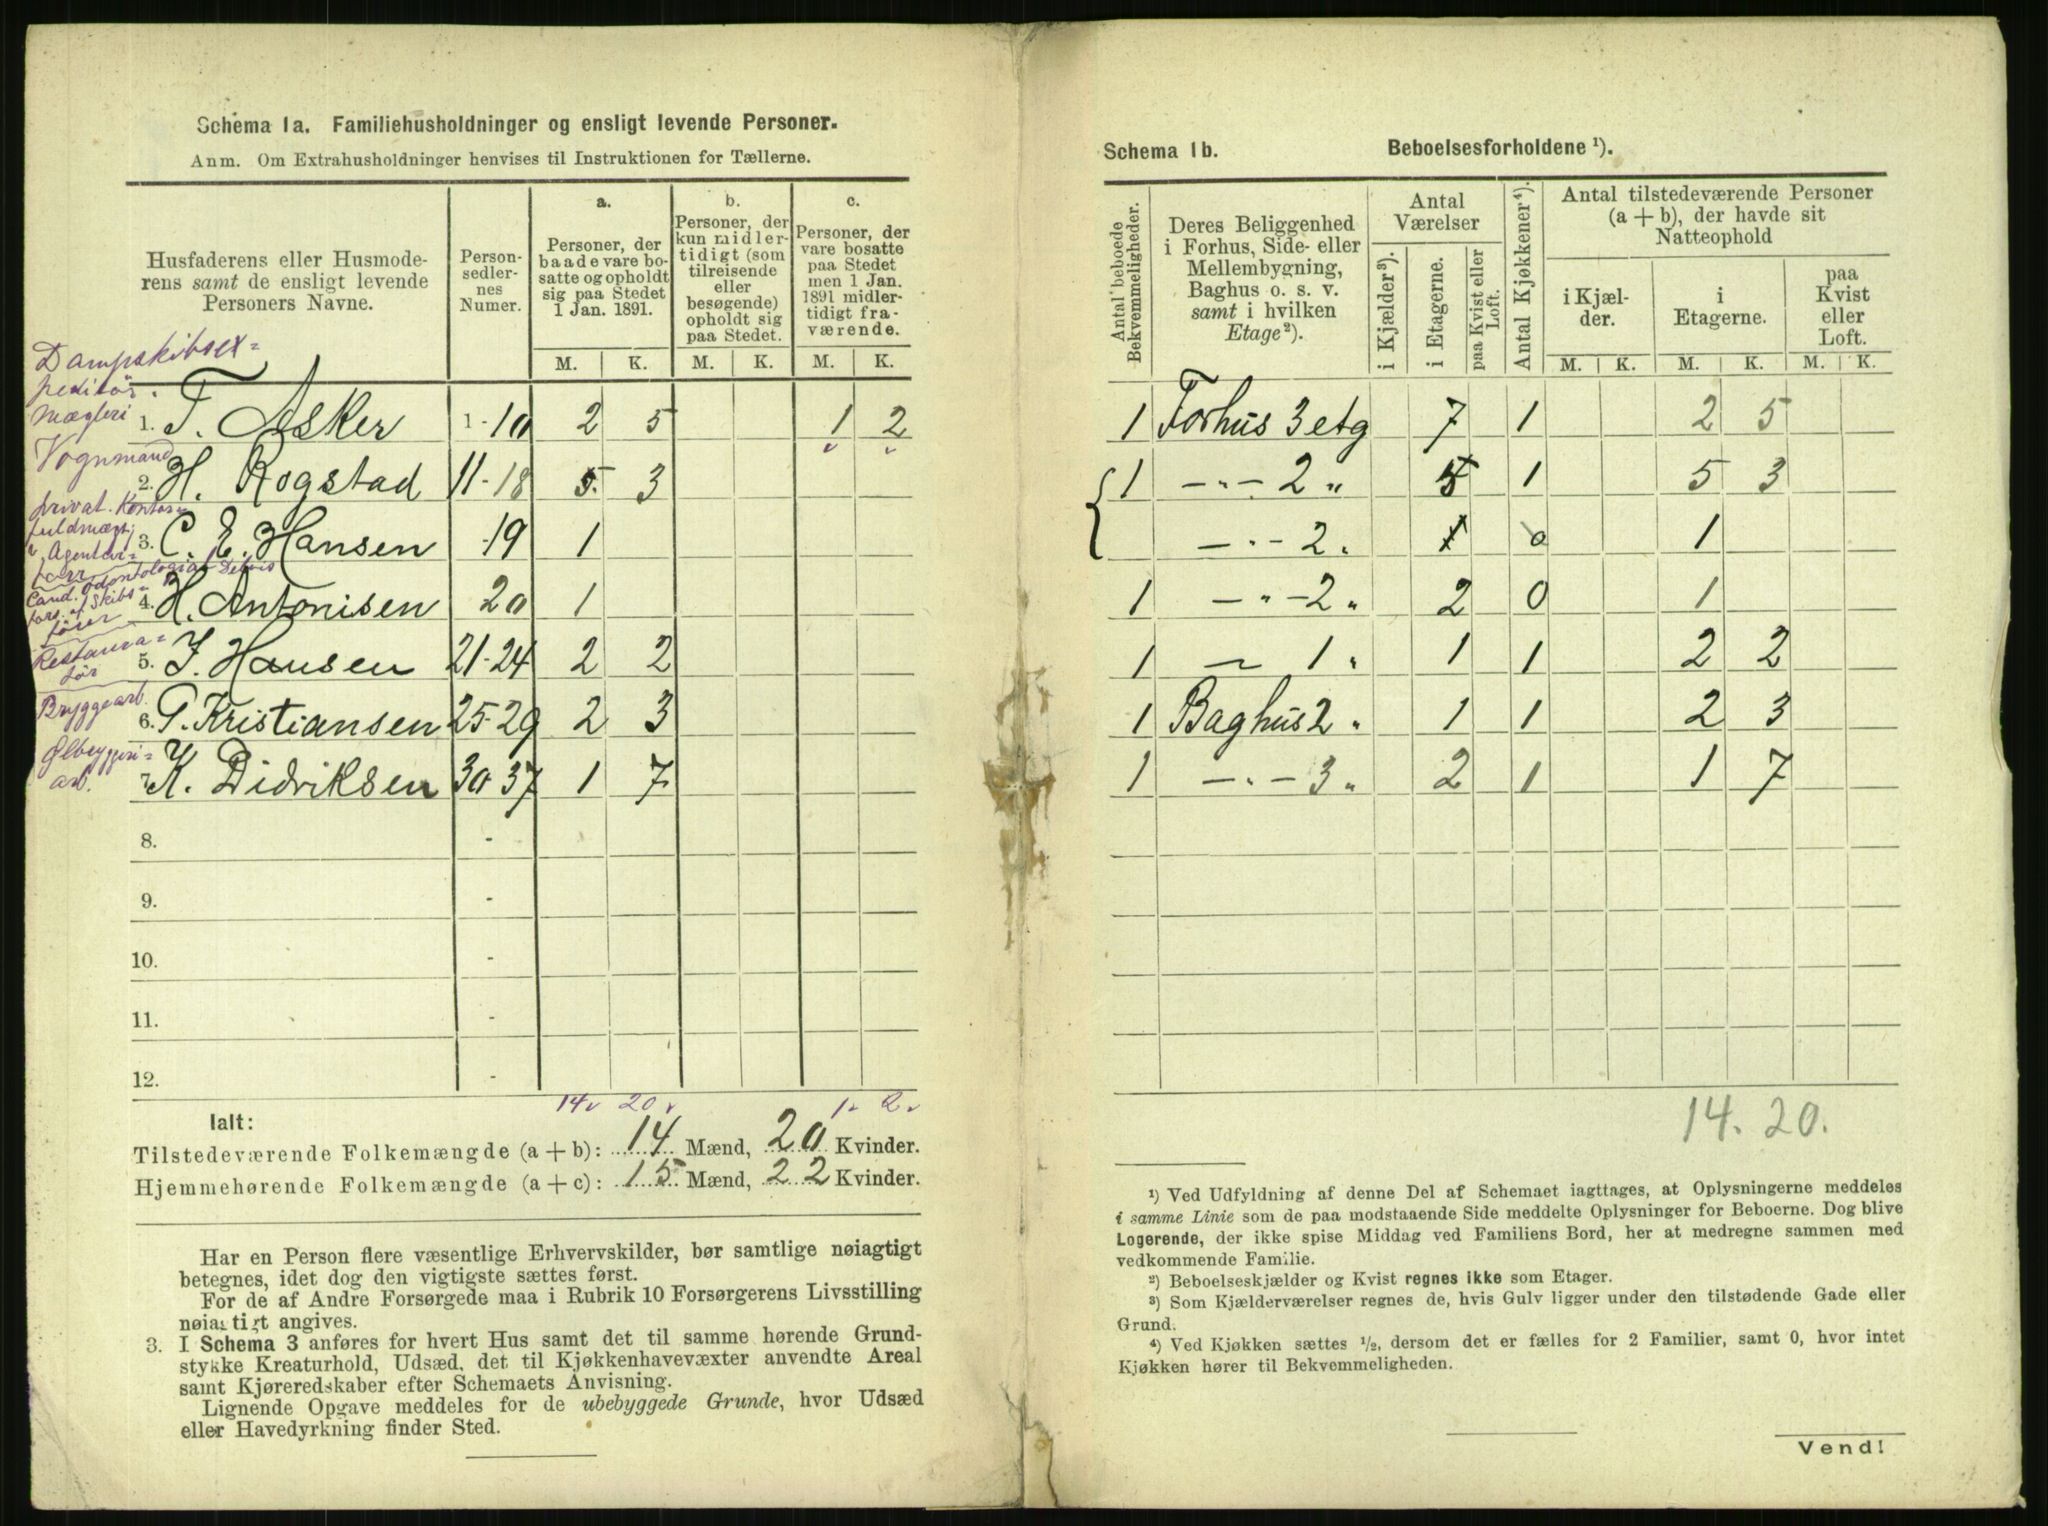 Schema 1a. Familiehusholdninger og ensligt levende Personer.
Anm. Om Extrahusholdninger henvises til Instruktionen for Tællerne.
Husfaderens eller Husmoderens samt de ensligt levende Personers Navne.
Person-sedlernes Numer.
a. Personer, der baade vare bosatte og opholdt sig paa Stedet 1 Jan. 1891.
b. Personer, der kun midlertidigt (som tilreisende eller besøgende) opholdt sig paa Stedet.
c. Personer, der vare bosatte paa Stedet men 1 Jan. 1891 midlertidigt fraværende.
M. K. M. K. M. K.
Dampskibsex=
peditør
Mægleri
1. T. Asker 1-10 2 5 1 2
Vognmand
2. H. Rogstad 11-18 5 3
privat. Kontor=
fuldmægt;
Agentur=
3. C. E. Hansen -19 1
Cand. Odontologia Delvis
fors. af Skibs=
fører
4. H. Antonisen 20 1
Restaura=
tør
5. J. Hansen 21-24 2 2
Bryggearb.
6. P. Kristiansen 25-29 2 3
Ølbryggeri=
arb.
7. K. Didriksen 30-37 1 7
8. -
9. -
10. -
11. -
12. -
14 20 1 2
Ialt:
Tilstedeværende Folkemængde (a + b): 14 Mænd, 20 Kvinder.
Hjemmehørende Folkemængde (a + c): 15 Mænd, 22 Kvinder.
Har en Person flere væsentlige Erhvervskilder, bør samtlige nøiagtigt
betegnes, idet dog den vigtigste sættes først.
For de af Andre Forsørgede maa i Rubrik 10 Forsørgerens Livsstilling
nøiagtigt angives.
3. I Schema 3 anføres for hvert Hus samt det til samme hørende Grund-
stykke Kreaturhold, Udsæd, det til Kjøkkenhavevæxter anvendte Areal
samt Kjøreredskaber efter Schemaets Anvisning.
Lignende Opgave meddeles for de ubebyggede Grunde, hvor Udsæd
eller Havedyrkning finder Sted.
Schema 1b. Beboelsesforholdene ¹).
Antal beboede Bekvemmeligheder.
Deres Beliggenhed i Forhus, Side- eller Mellembygning, Baghus o. s. v. samt i hvilken Etage²).
Antal Værelser
i Kjælder³).
i Etagerne.
paa Kvist eller Loft.
Antal Kjøkkener⁴).
Antal tilstedeværende Personer (a + b), der havde sit Natteophold
i Kjælder.
i Etagerne.
paa Kvist eller Loft.
M. K. M. K. M. K.
1 Forhus 3 etg 7 1 2 5
1 -"- 2 " 5 1 5 3
-"- 2 " 1 0 1
1 -"- 2 " 2 0 1
1 - 1 " 1 1 2 2
1 Baghus 2 " 1 1 2 3
1 -"- 3 " 2 1 1 7
14. 20.
¹) Ved Udfyldning af denne Del af Schemaet iagttages, at Oplysningerne meddeles
i samme Linie som de paa modstaaende Side meddelte Oplysninger for Beboerne. Dog blive
Logerende, der ikke spise Middag ved Familiens Bord, her at medregne sammen med
vedkommende Familie.
²) Beboelseskjælder og Kvist regnes ikke som Etager.
³) Som Kjælderværelser regnes de, hvis Gulv ligger under den tilstødende Gade eller
Grund.
⁴) Ved Kjøkken sættes ½, dersom det er fælles for 2 Familier, samt 0, hvor intet
Kjøkken hører til Bekvemmeligheden.
Vend!